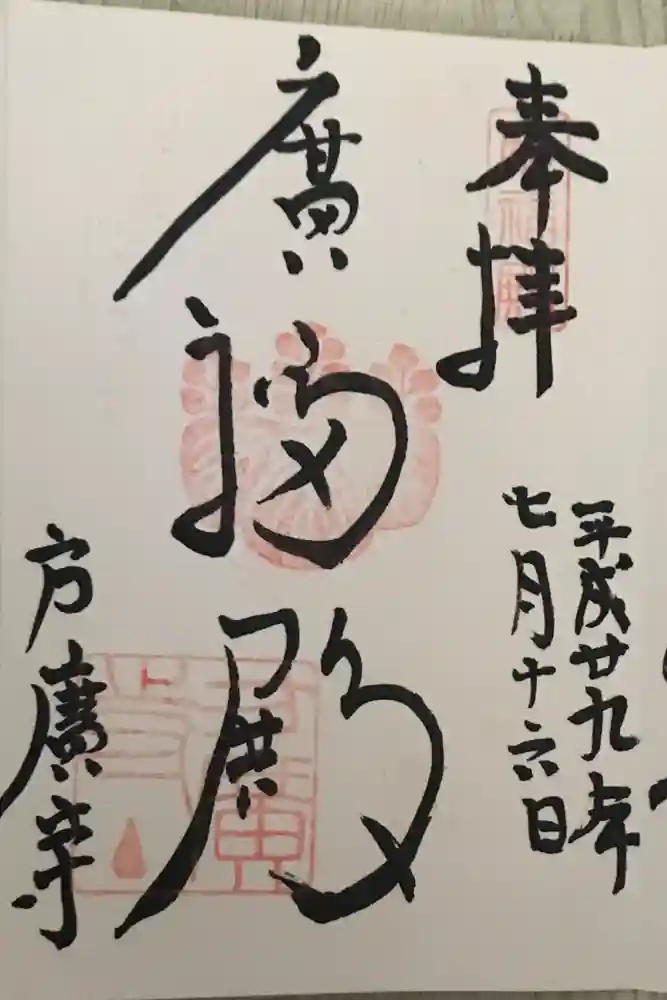 奉拝
平成廿九年
七月十六日
廣福殿
方廣寺